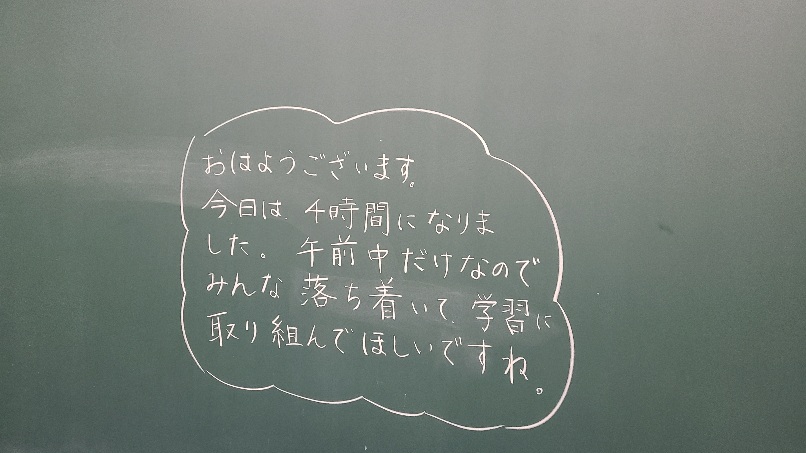 おはようございます。
今日は、4時間になりま
した。午前中だけなので
みんな落ち着いて、学習に
取り組んでほしいですね。